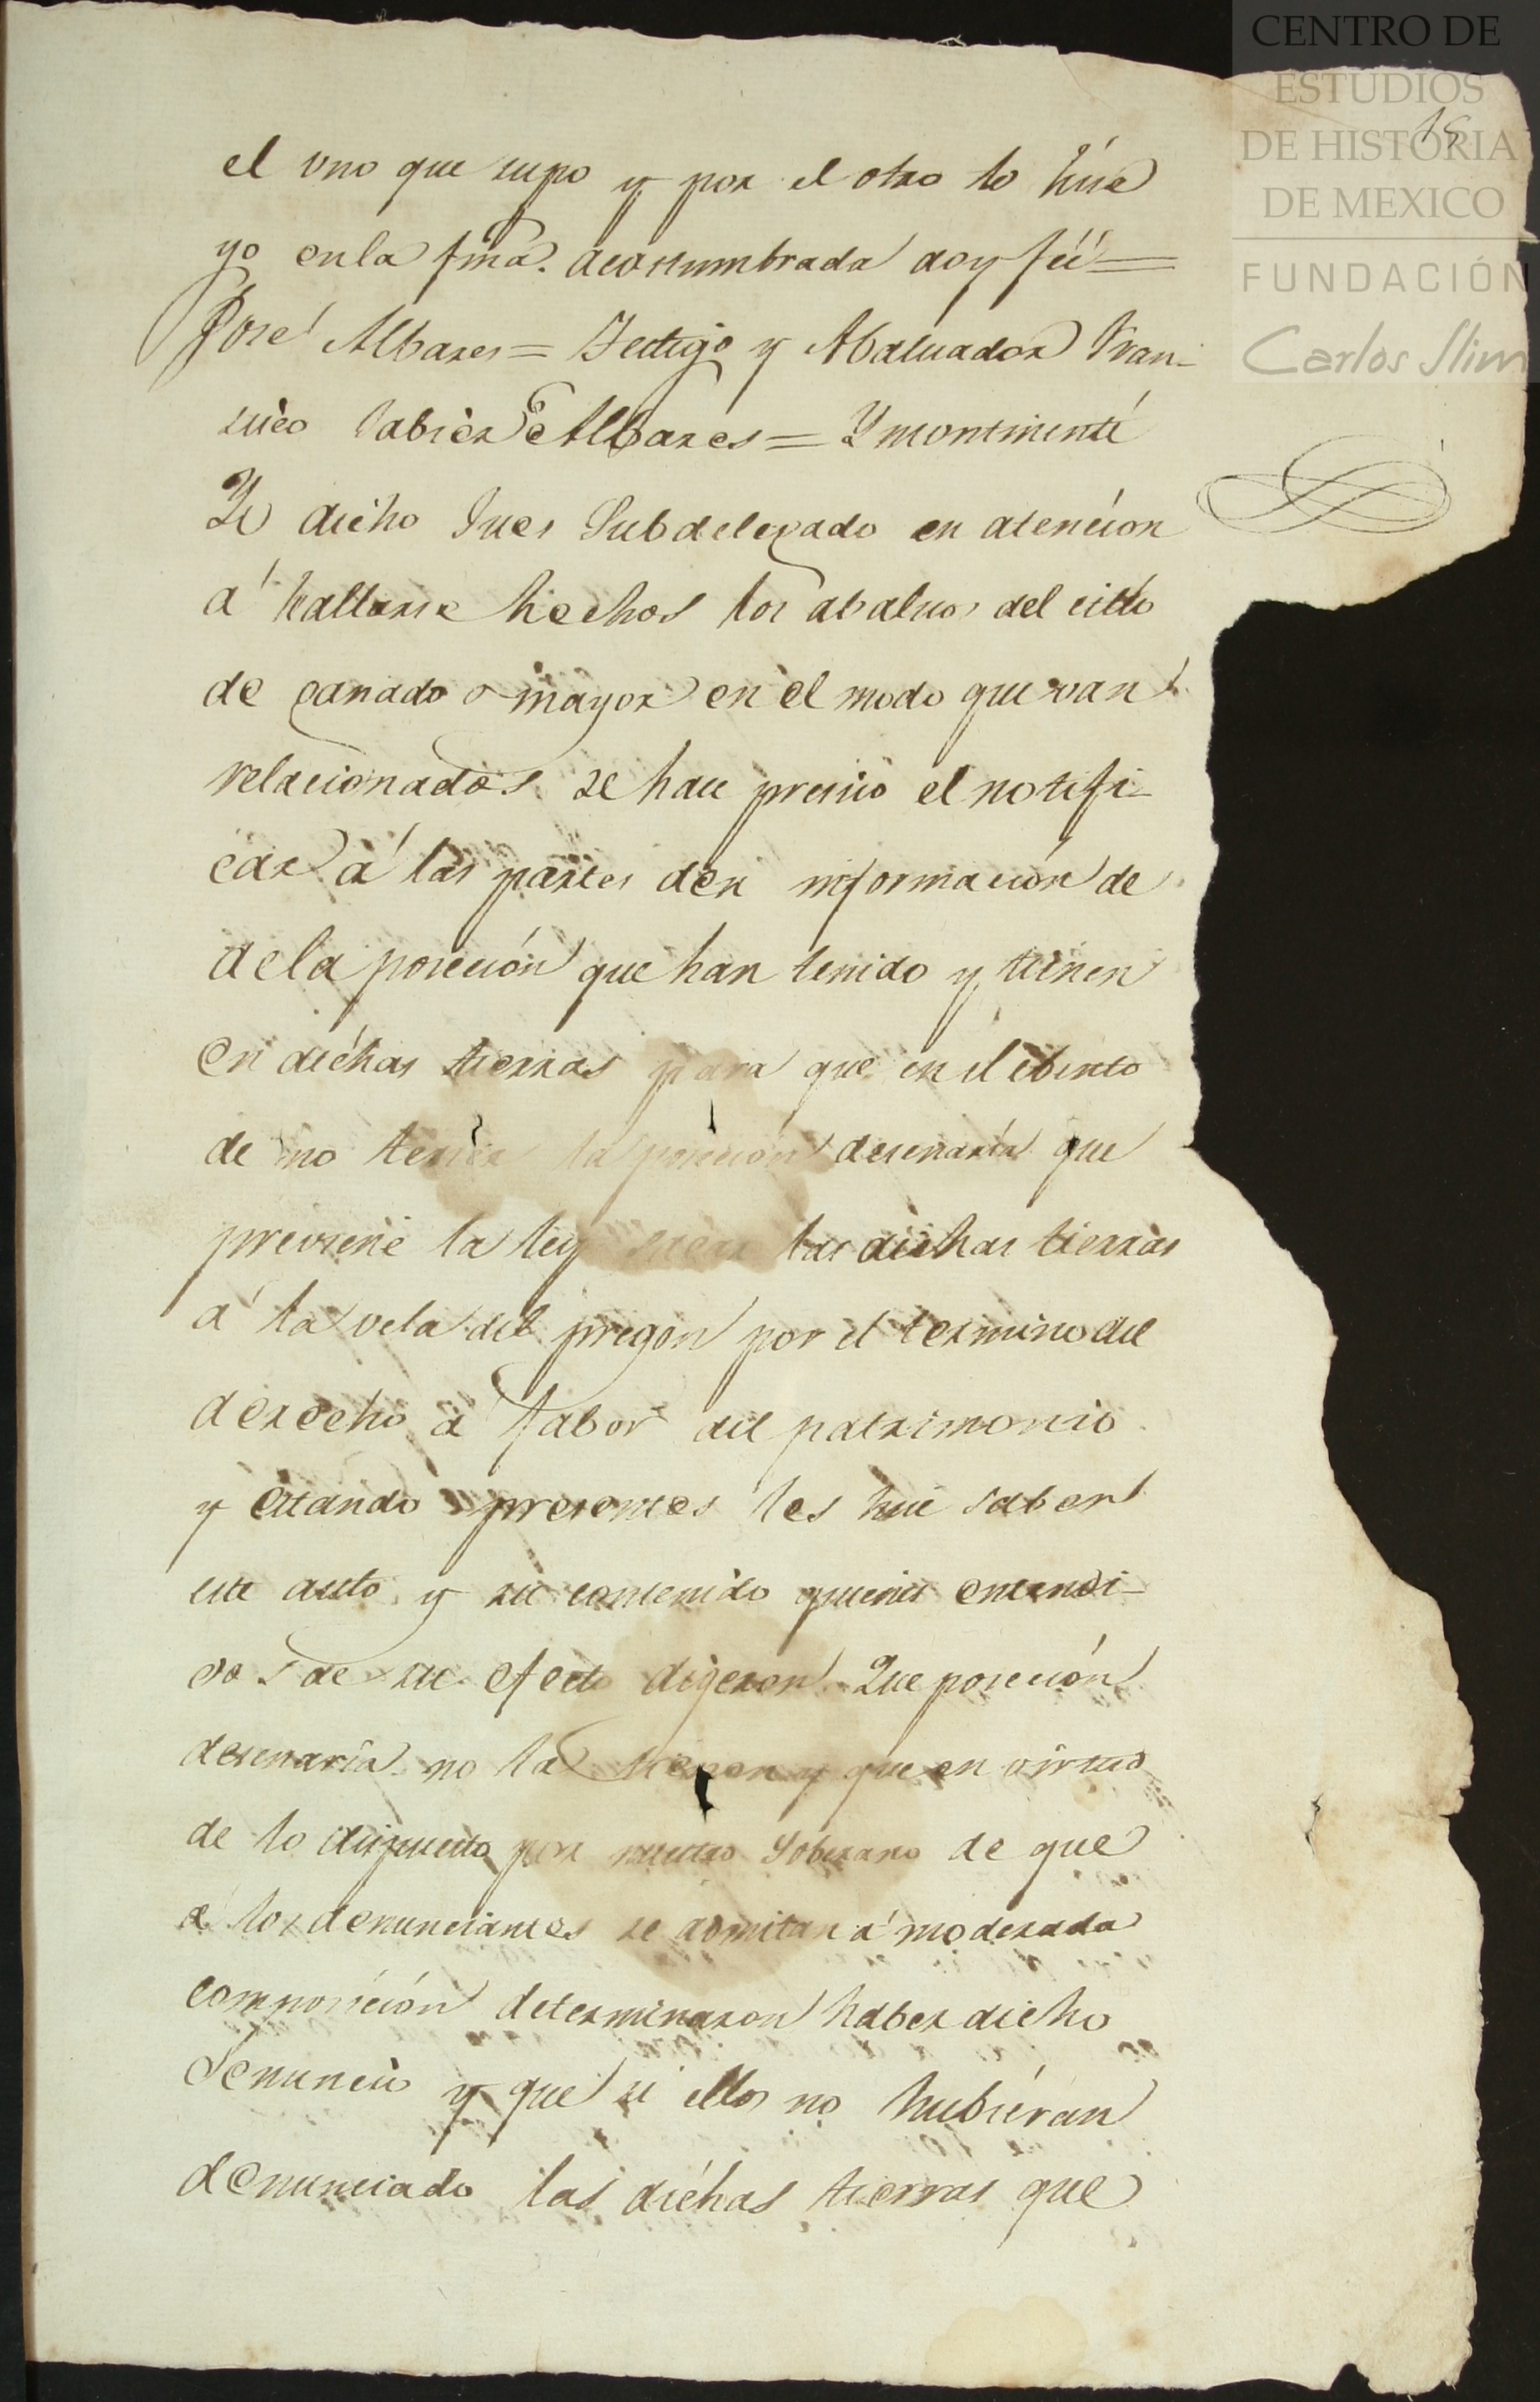 CENTRO DE
ESTUDIOS
DE HISTORIA
DE MEXICO
FUNDACIÓN
Carlos Slim
15
el uno que supo y por el otro lo hise
yo en la fma. acostumbrada doy feé =
José Albares = Testigo y Abaluador Fran-
sisco Sabier de Albares = Yncontinenti
Yo dicho Jues Subdelegado en atencion
á hallarse hechos los abaluos del sitio
de ganado mayor en el modo que van
relacionados se hace presiso el notifi-
car á las partes den informacion de
de la posecion que han tenido y tienen
en dichas tierras para que en el ebento
de no tener la posecion desenaria que
previene la ley sacar las dichas tierras
á la vela del pregon por el termino del
derecho á fabor del patrimonio
y estando presentes les hice saber
este auto y su contenido quienes entendi-
dos de su efecto digeron Que posecion
desenaria no la tienen y que en virtud
de lo dispuesto por nuestro Soberano de que
á los denunciantes se admitan á moderada
composicion determinaron haber dicho
Denuncio y que si ellos no hubieran
denunciado las dichas tierras que